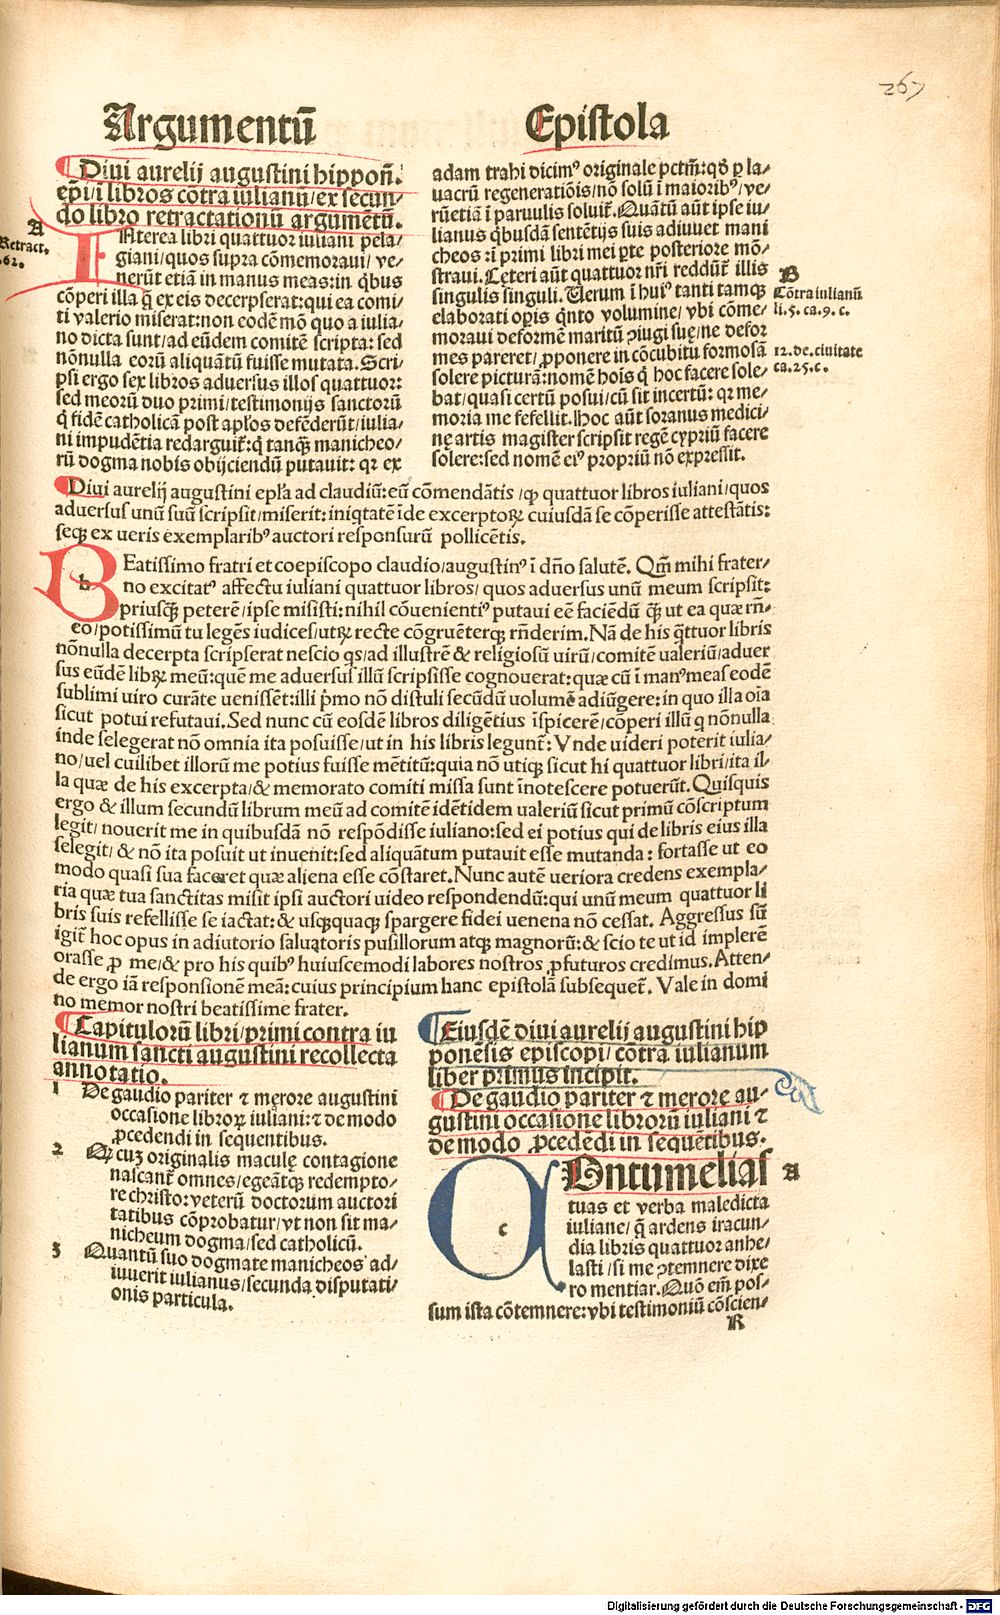 267
Argumentū
Epistola
Diui aurelij augustini hippoñ.
ep̄i/ī libros cōtra iulianū/ex secun/
do libro retractationū argumētū.
A
Retract.
.62.
INterea libri quattuor iuliani pela/
giani/quos supra cōmemoraui/ ve/
nerūt etiā in manus meas:in qͥbus
cōperi illa q̄ ex eis decerpserat:qui ea comi/
ti valerio miserat:non eodē mō quo a iulia/
no dicta sunt/ad eūdem comitē scripta: sed
nōnulla eorū aliquātū fuisse mutata.Scri/
psi ergo sex libros aduersus illos quattuor:
sed meorū duo primi/testimonijs sanctorū
q̇ fidē catholicā post apłos defēderūt/iulia/
ni impudētia redarguit̄:q̇ tanꝗ̄ manicheo/
rū dogma nobis obijciendū putauit: qꝛ ex
adam trahi dicimꝰ originale pctm̄:qd̓ ꝑ la/
uacrū regeneratiōis/nō solū ī maioribꝰ/ve/
rūetiā ī paruulis soluit̄.Quātū aūt ipse iu/
lianus qͥbusdā sentētijs suis adiuuet mani
cheos :ī primi libri mei ꝑte posteriore mō/
straui.Ceteri aūt quattuor nr̄i reddūt̄ illis
singulis singuli. Verum ī huiꝰ tanti tamꝗ
elaborati oꝑis qͥnto volumine/ vbi cōme/
moraui deformē maritū ꝯiugi suę/ne defor
mes pareret/ ꝓponere in cōcubitu formosā
solere picturā:nomē hoīs q̇ hoc facere sole/
bat/quasi certū posui/cū sit incertū: qꝛ me/
moria me fefellit.Hoc aūt soranus medici/
nę artis magister scripsit regē cypriū facere
solere:sed nomē eiꝰ propriū nō expressit.
B
Cōtra iulianū
li.5. ca.9. c.
12.de.ciuitate
ca.25.c.
Diui aurelij augustini epła ad claudiū:eū cōmendātis /ꝙ quattuor libros iuliani/quos
aduersus unū suū scripsit/miserit:iniqtatē īde excerptoꝝ cuiusdā se cōperisse attestātis:
seqꝫ ex ueris exemplaribꝰ auctori responsurū pollicētis.
b
BEatissimo fratri et coepiscopo claudio/augustinꝰ ī dn̄o salutē. Qm̄ mihi frater/
no excitatꝰ affectu iuliani quattuor libros/ quos aduersus unū meum scripsit:
priusꝗ̄ peterē/ipse misisti:nihil cōuenientiꝰ putaui eē faciēdū ꝗ̄ ut ea quæ rn̄/
eo/potissimū tu legēs iudices/utꝝ recte cōgruēterqꝫ rn̄derim.Nā de his q̄ttuor libris
nōnulla decerpta scripserat nescio qs/ad illustrē & religiosū uirū/comitē valeriū/aduer
sus eūdē librꝫ meū:quē me aduersus illū scripsisse cognouerat:quæ cū ī manꝰmeas eodē
sublimi uiro curāte uenissēt:illi pͥmo nō distuli secūdū volumē adiūgere:in quo illa oīa
sicut potui refutaui.Sed nunc cū eosdē libros diligētius īspicerē/cōperi illū q nōnulla
inde selegerat nō omnia ita posuisse/ut in his libris legunt̄: Vnde uideri poterit iulia/
no/uel cuilibet illorū me potius fuisse mētitū:quia nō utiqꝫ sicut hi quattuor libri/ita il/
la quæ de his excerpta/& memorato comiti missa sunt īnotescere potuerūt.Quisquis
ergo & illum secundū librum meū ad comitē idētidem ualeriū sicut primū cōscriptum
legit/ nouerit me in quibusdā nō respōdisse iuliano:sed ei potius qui de libris eius illa
selegit/ & nō ita posuit ut inuenit:sed aliquātum putauit esse mutanda: fortasse ut eo
modo quasi sua faceret quæ aliena esse cōstaret.Nunc autē ueriora credens exempla/
ria quæ tua sanctitas misit ipsi auctori uideo respondendū:qui unū meum quattuor li
bris suis refellisse se iactat:& usqꝫquaqꝫ spargere fidei uenena nō cessat. Aggressus sū
igit̄ hoc opus in adiutorio saluatoris pusillorum atqꝫ magnorū:& scio te ut id implerē
orasse ꝓ me/& pro his quibꝰ huiuscemodi labores nostros ꝓfuturos credimus.Atten/
de ergo iā responsionē meā:cuius principium hanc epistolā subsequet̄. Vale in domi
no memor nostri beatissime frater.
Capitulorū libri/primi contra iu
lianum sancti augustini recollecta
annotatio.
1 De gaudio pariter ⁊ męrore augustini
occasione libroꝝ iuliani:⁊ de modo
ꝓcedendi in sequentibus.
2 Q cuꝫ originalis maculę contagione
nascant̄ omnes/egeātqꝫ redempto/
re christo:veterū doctorum auctori
tatibus cōprobatur/vt non sit ma/
nicheum dogma/sed catholicū.
3 Quantū suo dogmate manicheos ad/
iuuerit iulianus/secunda disputati/
onis particula.
Eiusdē diui aurelij augustini hip
ponēsis episcopi/cōtra iulianum
liber primus incipit.
De gaudio pariter ⁊ merore au/
gustini occasione librorū iuliani ⁊
de modo ꝓcedēdi in sequētibus.
c
COntumelias
A
tuas et verba maledicta
iuliane/ q̄ ardens iracun/
dia libris quattuor anhe/
lasti /si me ꝯtemnere dixe
ro mentiar.Quō em̄ pos/
sum ista cōtemnere:vbi testimoniū cōscien/
R
Digitalisierung gefördert durch die Deutsche Forschungsgemeinschaft - DFG